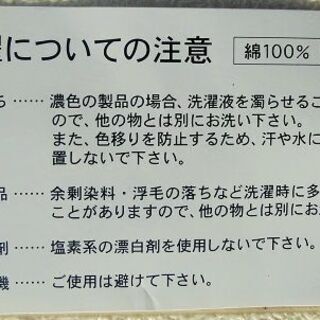 についての注意 綿100%
ち …… 濃色の製品の場合、洗濯液を濁らせるこ
ので、他の物とは別にお洗い下さい。
また、色移りを防止するため、汗や水に
置しないで下さい。
品 …… 余剰染料・浮毛の落ちなど洗濯時に多
ことがありますので、他の物とは別にお
剤 …… 塩素系の漂白剤を使用しないで下さい。
機 …… ご使用は避けて下さい。